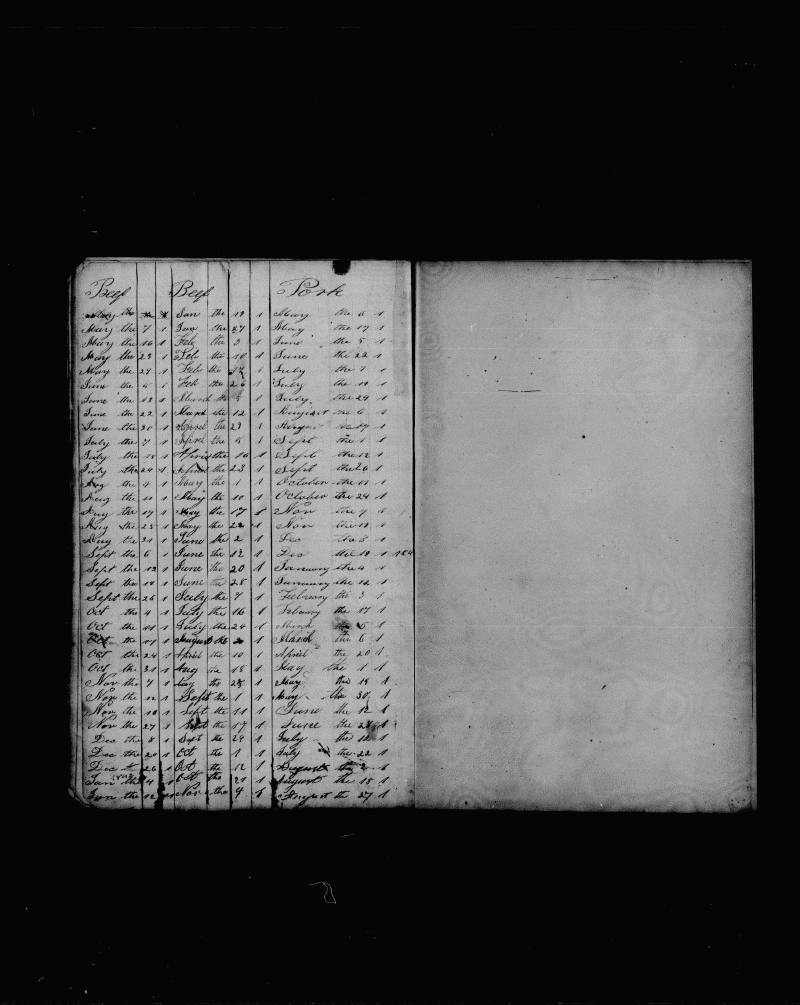 Beef Beef Pork
May the Jan the 19 1 May the 6 1
May the 7 1 Jan the 27 1 May the 17 1
May the 16 1 Feb the 3 1 June the 5 1
May the 23 1 Feb the 10 1 June the 22 1
May the 27 1 Feb the July the 7 1
June the 5 1 Feb the 26 1 July the 19 1
June the 13 1 March the July the 29 1
June the 22 1 March the 12 1 August the 6
June the 30 1 April the 23 1 August the 17 1
July the 7 1 April the 8 Sept the 1 1
July the 15 1 April the 16 1 Sept the 12 1
July the 24 1 April the 23 1 Sept the 26 1
Aug the 4 1 May the 1 1 October the 11 1
Aug the 11 1 May the 10 1 October the 24 1
Aug the 17 1 May the 17 Nov the 7
Aug the 25 1 May the 22 1 Nov the 19 1
Aug the 31 1 June the 2 1 Dec the 8 1
Sept the 6 1 June the 12 1 Dec the 19 1 184
Sept the 12 1 June the 20 1 January the 4 1
Sept the 18 1 June the 28 1 January the 1
Sept the 26 1 July the 7 1 February the 3 1
Oct the 4 1 July the 16 1 February the 17 1
Oct the 11 1 July the 24 1 March the 5 1
Oct the 17 1 August the 2 1 March the 6 1
Oct the 24 1 April the 10 1 April the 20 1
Oct the 31 1 Aug the 18 1 May the 1 1
Nov the 7 1 Aug the 28 1 May the 18 1
Nov the 12 1 Sept the 1 1 May the 30 1
Nov the 19 1 Sept the 11 1 June the 12 1
Nov the 27 1 Sept the 17 1 June the 28 1
Dec the 8 1 Sept the 29 1 July the 12 1
Dec the 20 1 Oct the 1 1 July the 22 1
Dec the 26 1 Oct the 12 1 August the 2
Jan the 4 1 Oct the 21 1 August the 18 1
Jan the 12 Nov the 4 August the 27 1